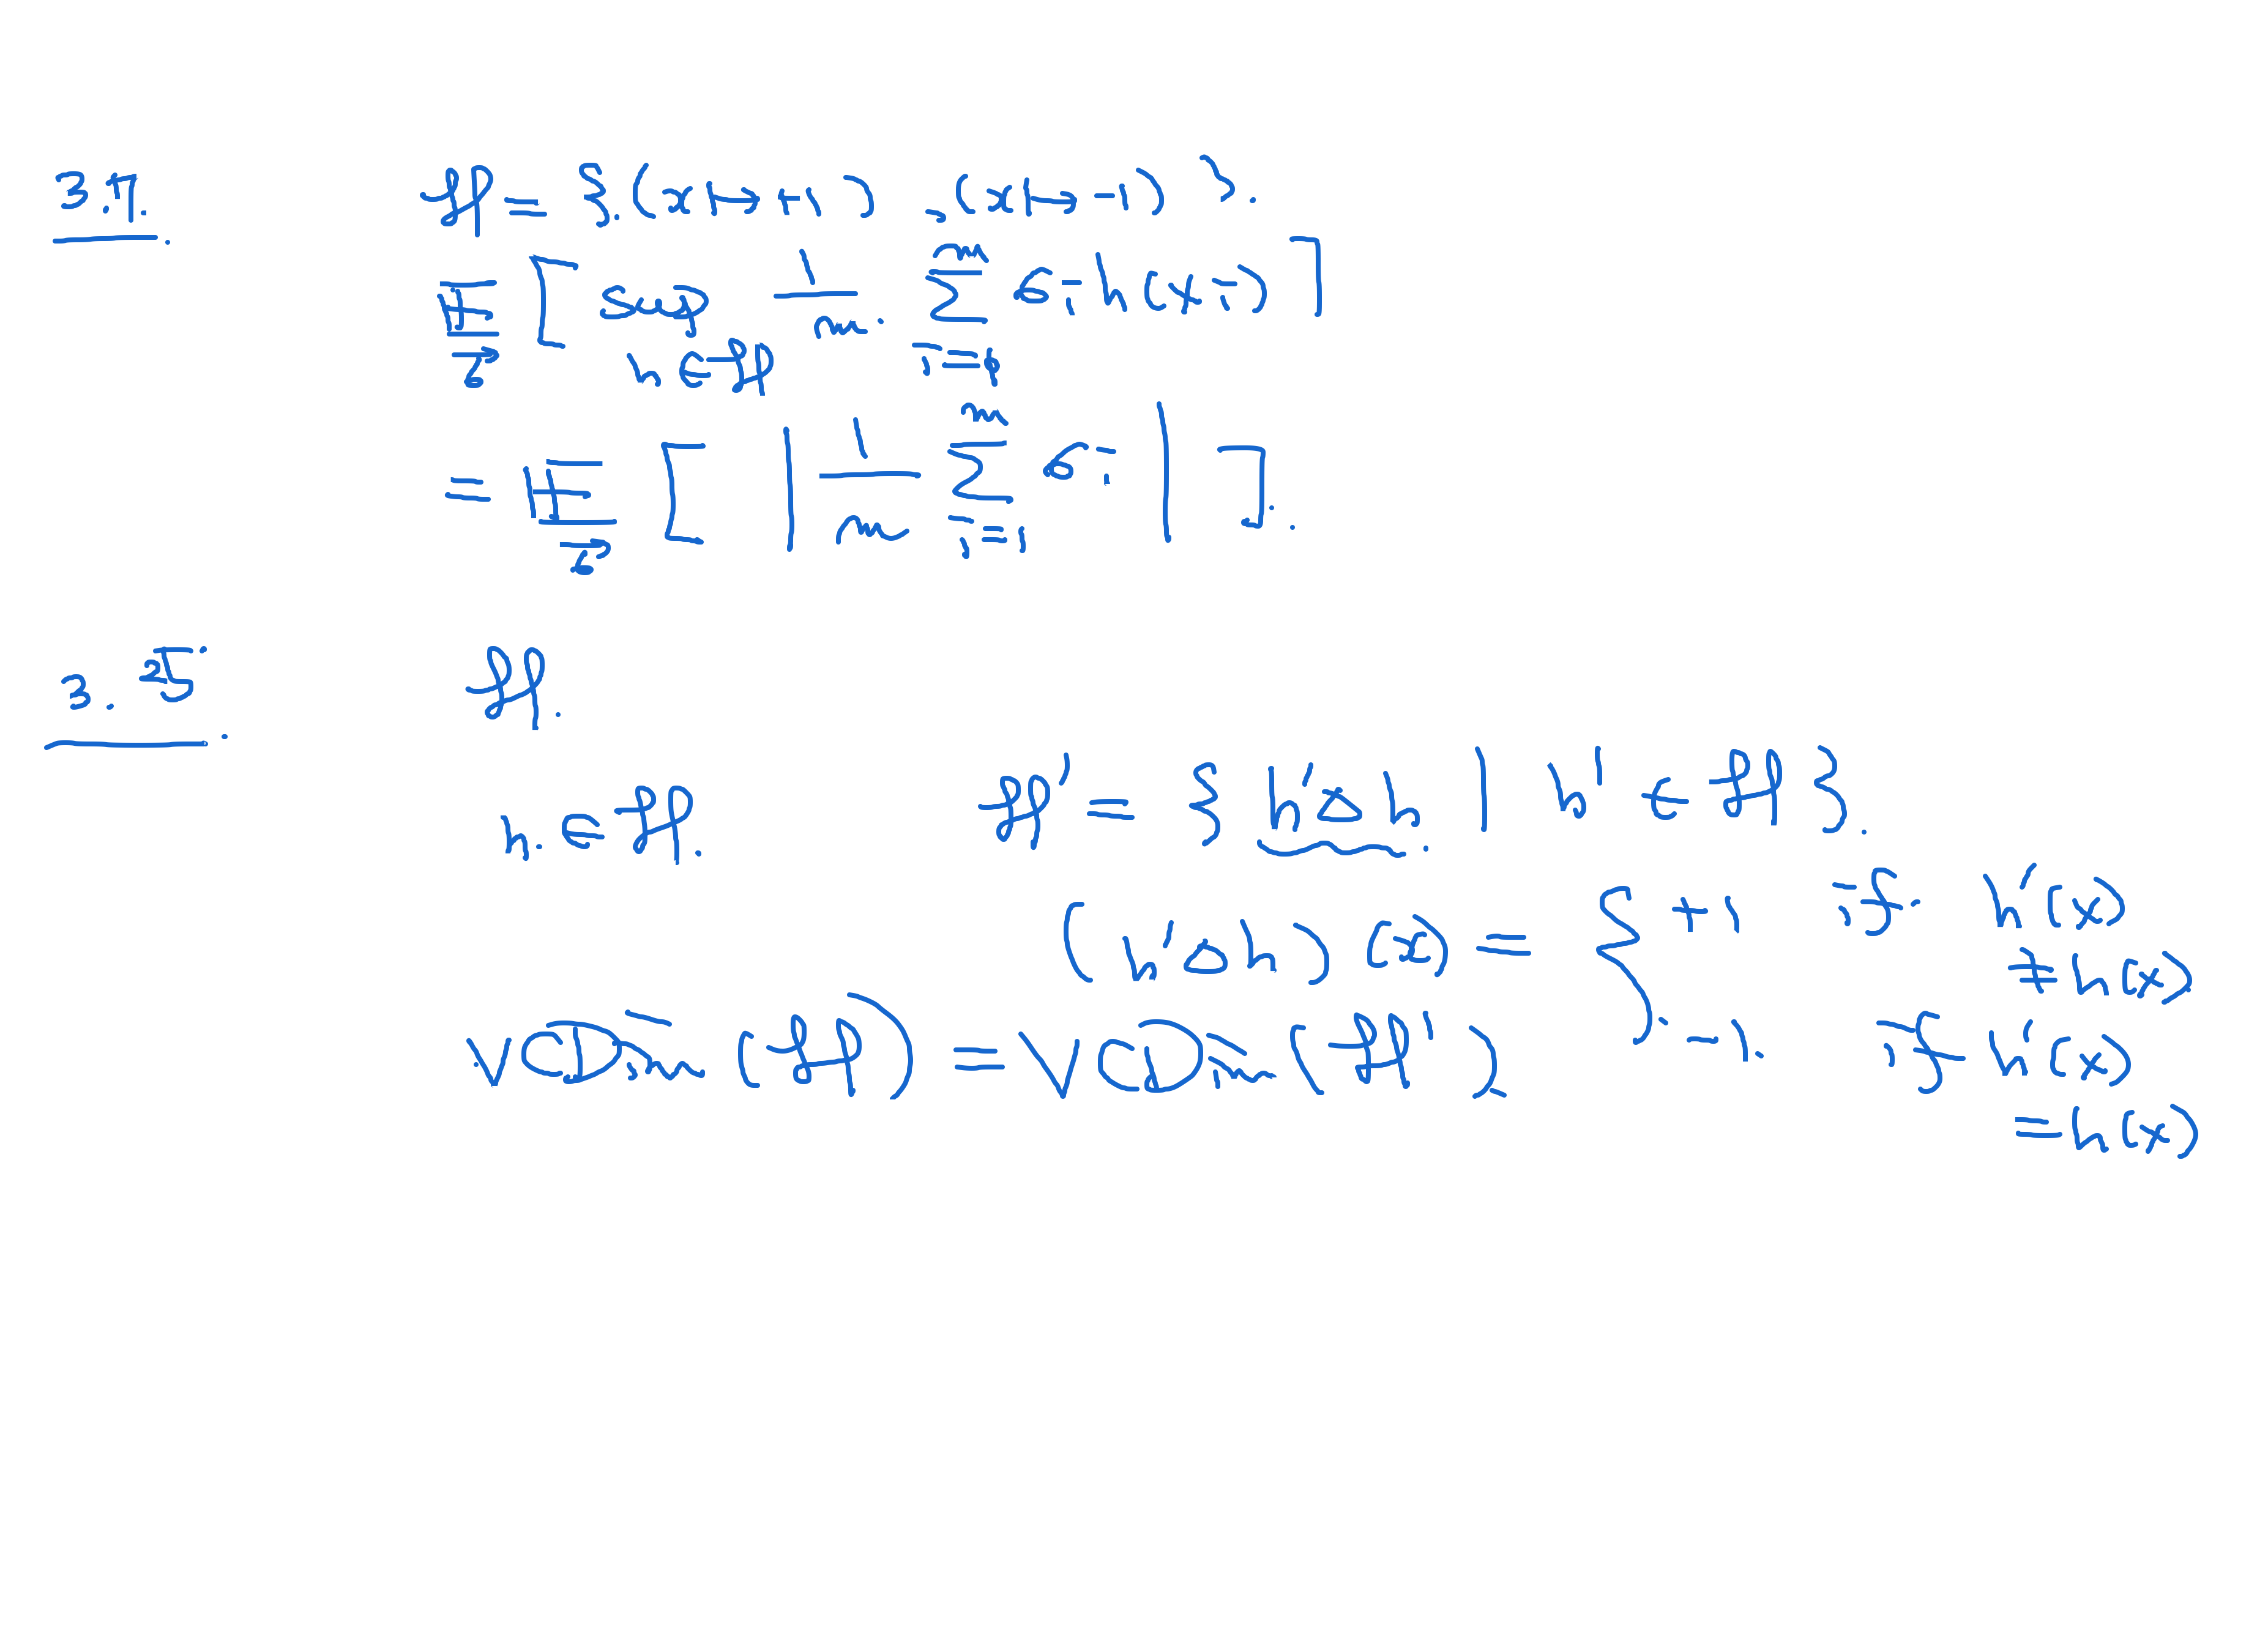 3.7. H = {(x ↦ +1), (x ↦ -1)}.
E_σ [ sup_{h∈H} 1/m ∑_{i=1}^{m} σ_i h(x_i) ]
= E_σ [ | 1/m ∑_{i=1}^{m} σ_i | ].
3.5. H.
h ∈ H. H' = { h'Δh | h' ∈ H }.
(h'Δh)(x) = { +1 if h'(x) ≠ h(x)
-1. if h'(x) = h(x)
VDim(H) = VDim(H').